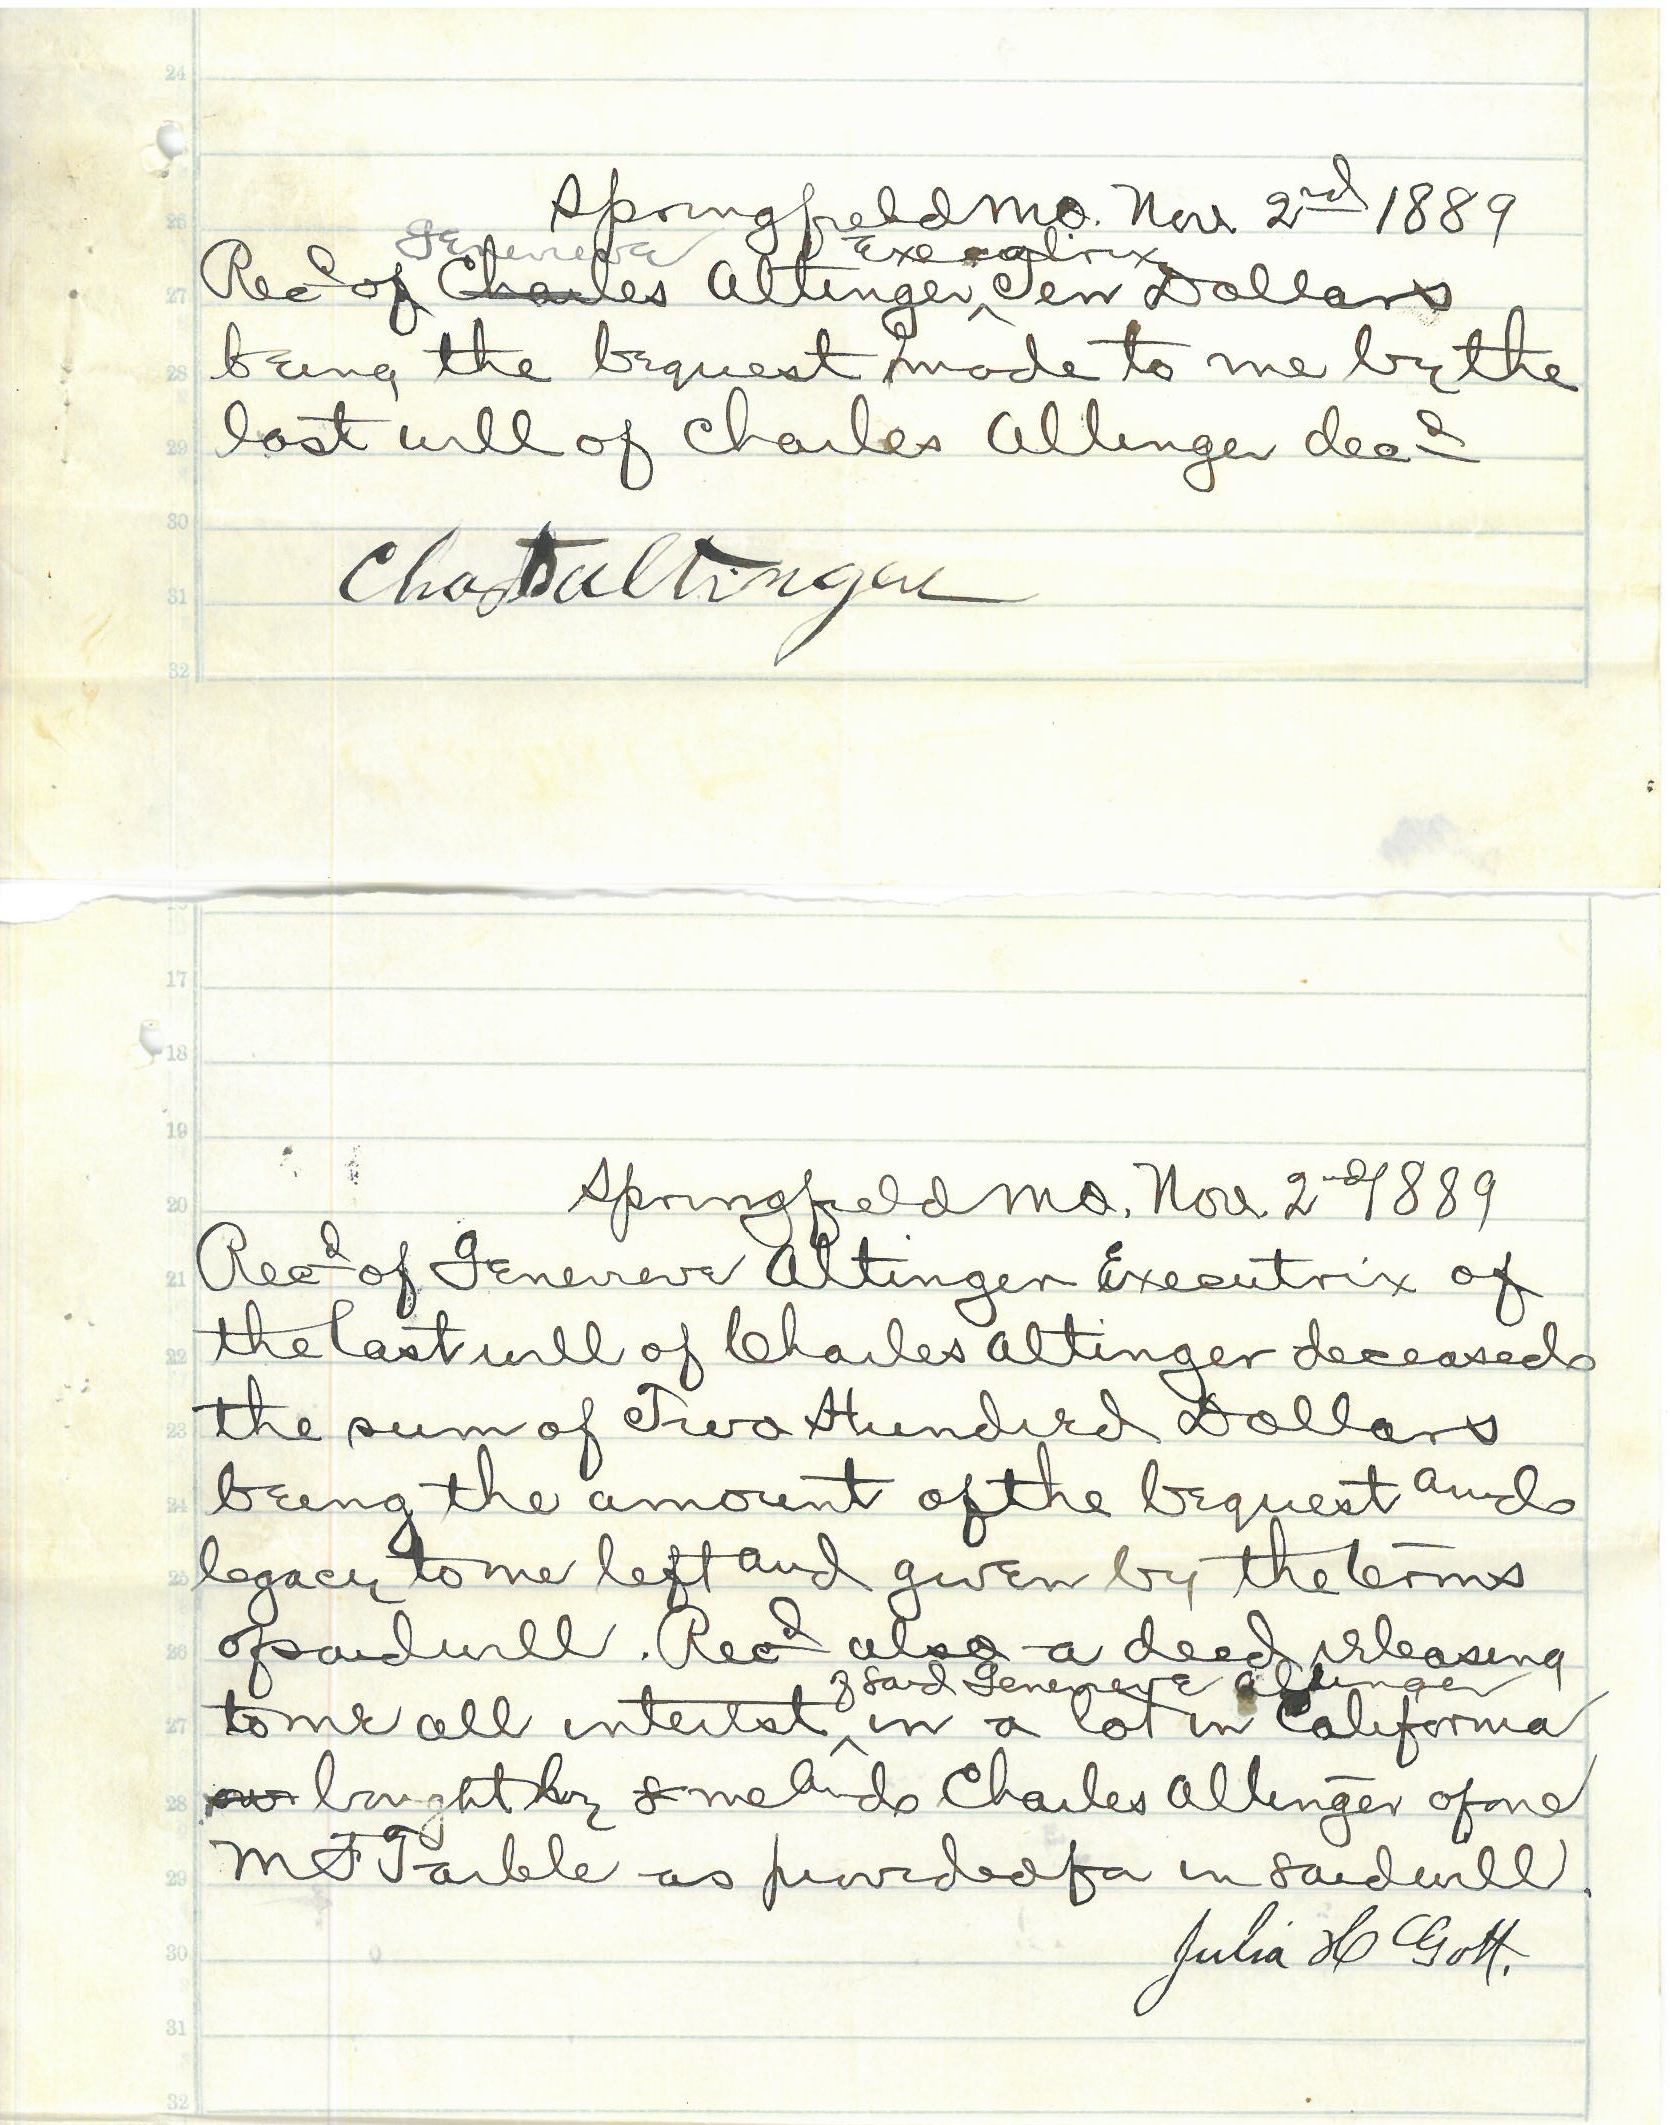 Springfield Mo. Nov 2nd 1889
Genevieve Executrix
Recd of Charles Altinger, Ten Dollars
being the bequest made to me by the
last will of Charles Altinger decd
Chas Altinger
Springfield Mo. Nov 2nd 1889
Recd of Genevieve Altinger Executrix of
the last will of Charles Altinger deceased
the sum of Two Hundred Dollars
being the amount of the bequest and
legacy to me left and given by the terms
of said will. Recd also a deed releasing
of said Genevieve Altinger
to me all interest in a lot in California
bought by me and Charles Altinger of one
M F Tarble as provided for in said will.
Julia H Gott.
24
26
27
28
29
30
31
32
17
18
19
20
21
22
23
24
25
26
27
28
29
30
31
32